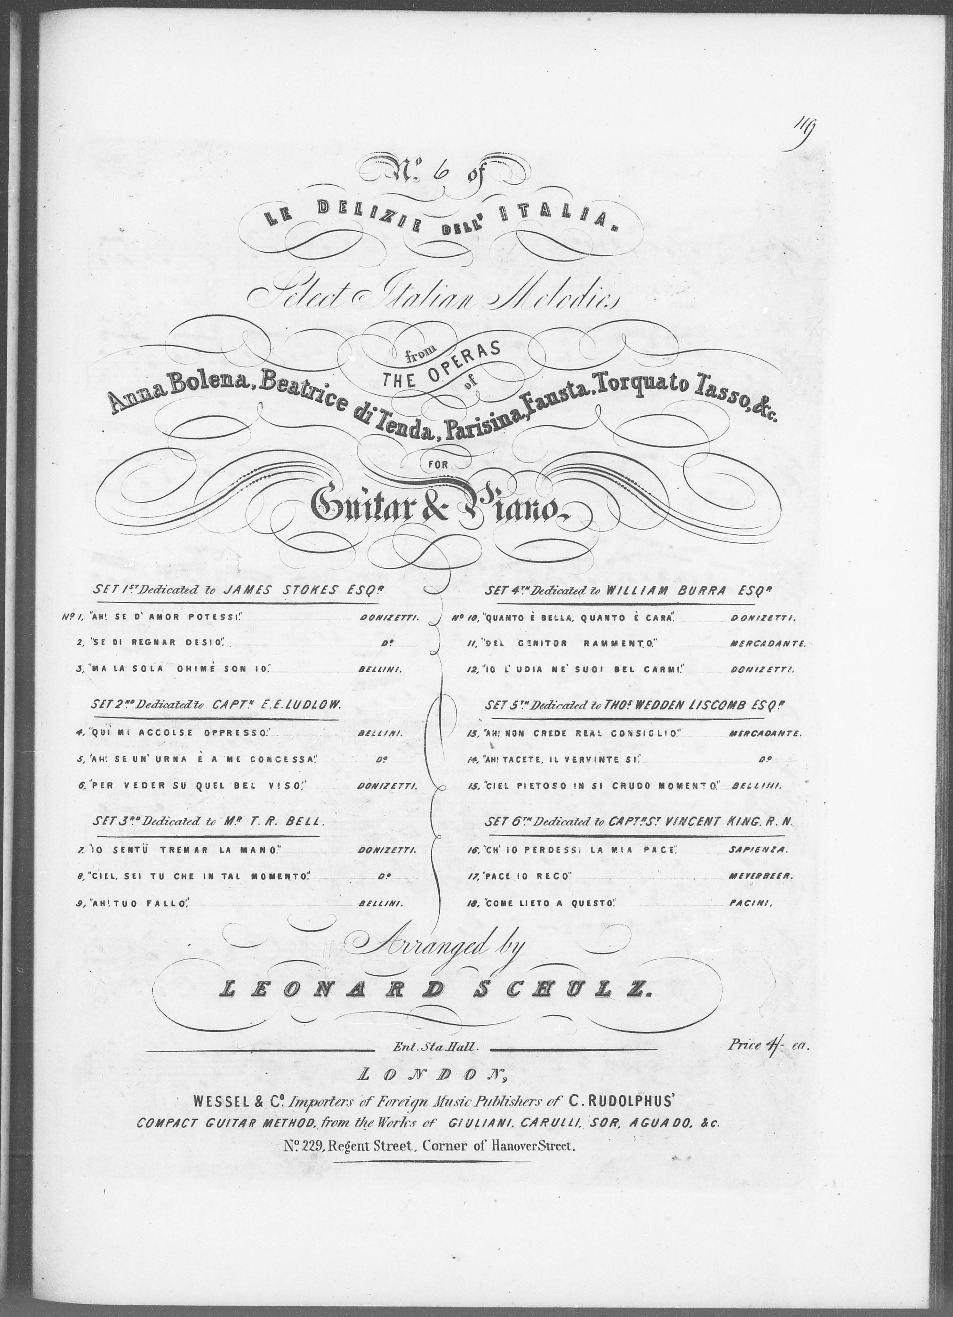 119
No. 6 of
LE DELIZIE DELL' ITALIA.
Select Italian Melodies
from
THE OPERAS
of
Anna Bolena, Beatrice di Tenda, Parisina, Fausta, Torquato Tasso, &c.
FOR
Guitar & Piano.
SET 1ST Dedicated to JAMES STOKES ESQR
No 1, "AH! SE D' AMOR POTESSI." DONIZETTI.
2, "SE DI REGNAR DESIO." Do
3, "MA LA SOLA OHIMÈ SON IO." BELLINI.
SET 2ND Dedicated to CAPTN E.E. LUDLOW.
4, "QUI MI ACCOLSE OPPRESSO." BELLINI.
5, "AH! SE UN' URNA È A ME CONCESSA." Do
6, "PER VEDER SU QUEL BEL VISO." DONIZETTI.
SET 3RD Dedicated to MR T. R. BELL.
7, "IO SENTÜ TREMAR LA MANO." DONIZETTI.
8, "CIEL, SEI TU CHE IN TAL MOMENTO." Do
9, "AH! TUO FALLO." BELLINI.
SET 4TH Dedicated to WILLIAM BURRA ESQR
No 10, "QUANTO È BELLA, QUANTO È CARA." DONIZETTI.
11, "DEL GENITOR RAMMENTO." MERCADANTE.
12, "IO L' UDIA NE' SUOI BEL CARMI." DONIZETTI.
SET 5TH Dedicated to THOS WEDDEN LISCOMB ESQR
13, "AH! NON CREDE REAL CONSIGLIO." MERCADANTE.
14, "AH! TACETE, IL VERVINTE SI." Do
15, "CIEL PIETOSO IN SI CRUDO MOMENTO." BELLINI.
SET 6TH Dedicated to CAPTN ST VINCENT KING. R. N.
16, "CH' IO PERDESSI LA MIA PACE." SAPIENZA.
17, "PACE IO RECO" MEYERBEER.
18, "COME LIETO A QUESTO." PACINI.
Arranged by
LEONARD SCHULZ.
Ent. Sta. Hall. Price 4/- ea.
LONDON,
WESSEL & Co. Importers of Foreign Music Publishers of C. RUDOLPHUS'
COMPACT GUITAR METHOD, from the Works of GIULIANI, CARULLI, SOR, AGUADO, &c.
No. 229, Regent Street, Corner of Hanover Street.